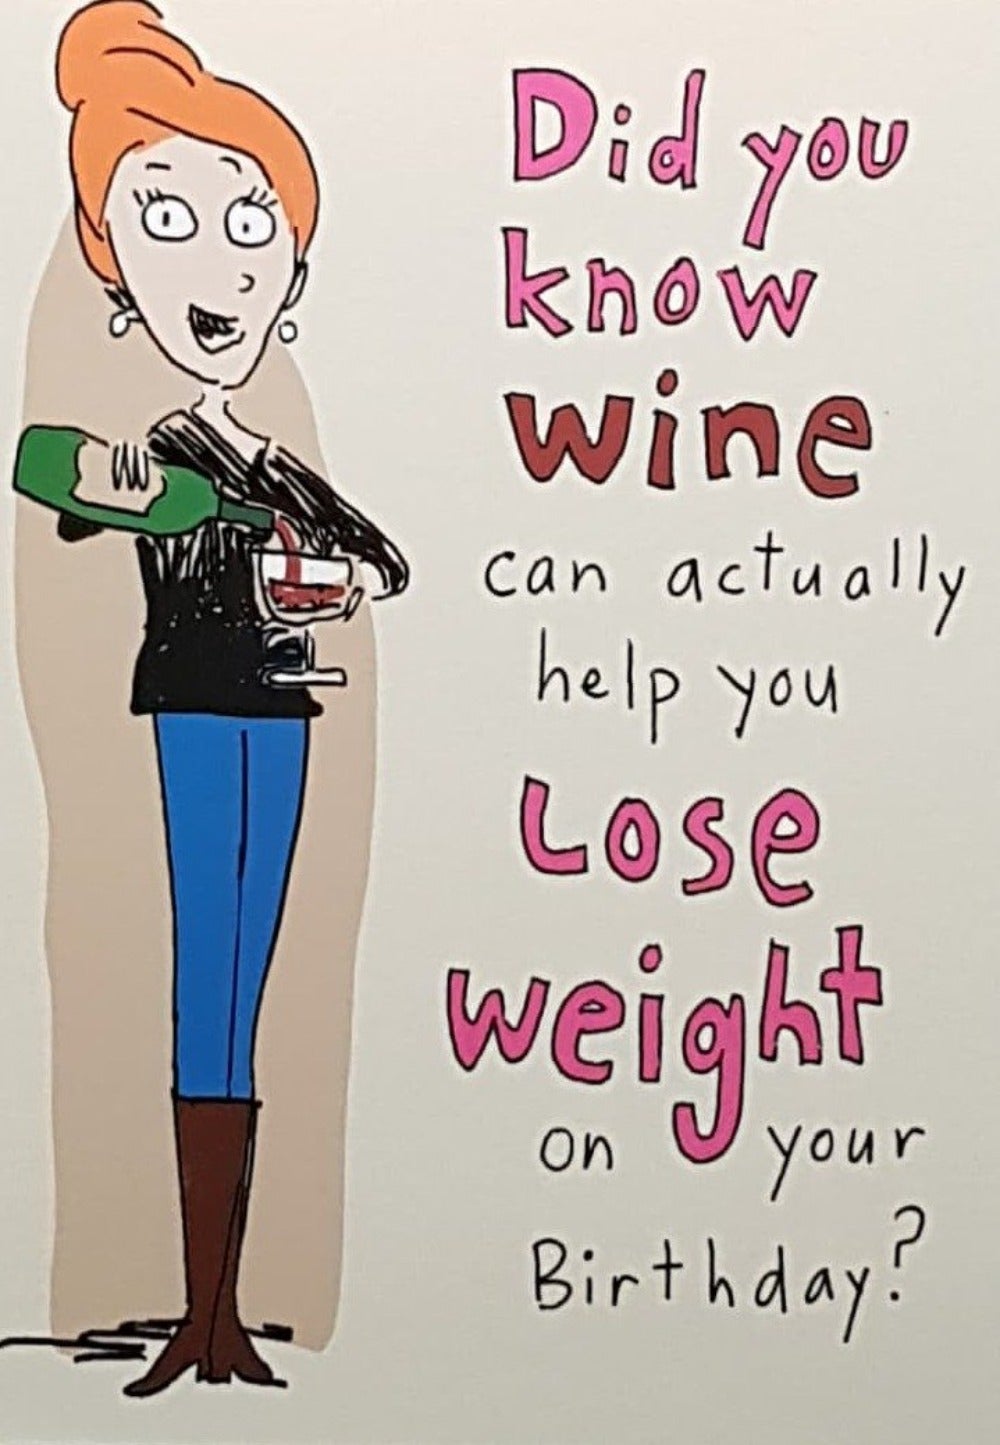 Did you
know
wine
can actually
help you
Lose
weight
on your
Birthday?